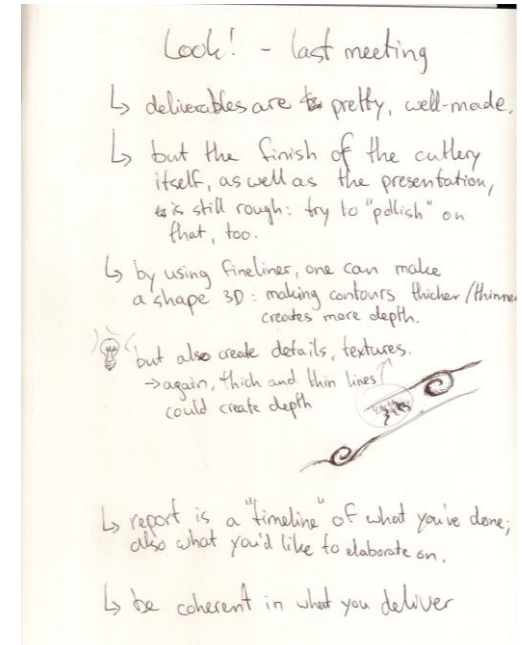 Look! - last meeting
↳ deliverables are pretty, well-made.
↳ but the finish of the cutlery
itself, as well as the presentation,
is still rough: try to "polish" on
that, too.
↳ by using fineliner, one can make
a shape 3D: making contours thicker/thinner
creates more depth.
but also create details, textures.
→ again, thich and thin lines
could create depth
↳ report is a "timeline" of what you've done;
also what you'd like to elaborate on.
↳ be coherent in what you deliver